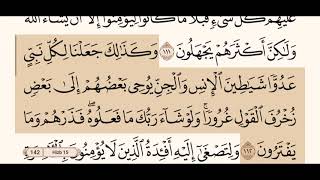 عَلَيْهِمْ كُلَّ شَىْءٍ قُبُلًا مَّا كَانُوا۟ لِيُؤْمِنُوٓا۟ إِلَّآ أَن يَشَآءَ ٱللَّهُ
وَلَٰكِنَّ أَكْثَرَهُمْ يَجْهَلُونَ ١١١ وَكَذَٰلِكَ جَعَلْنَا لِكُلِّ نَبِىٍّ
عَدُوًّا شَيَٰطِينَ ٱلْإِنسِ وَٱلْجِنِّ يُوحِى بَعْضُهُمْ إِلَىٰ بَعْضٍ
زُخْرُفَ ٱلْقَوْلِ غُرُورًا ۚ وَلَوْ شَآءَ رَبُّكَ مَا فَعَلُوهُ ۖ فَذَرْهُمْ وَمَا
يَفْتَرُونَ ١١٢ وَلِتَصْغَىٰٓ إِلَيْهِ أَفْـِٔدَةُ ٱلَّذِينَ لَا يُؤْمِنُونَ بِٱلْـَٔاخِرَةِ
142 Hizb 15